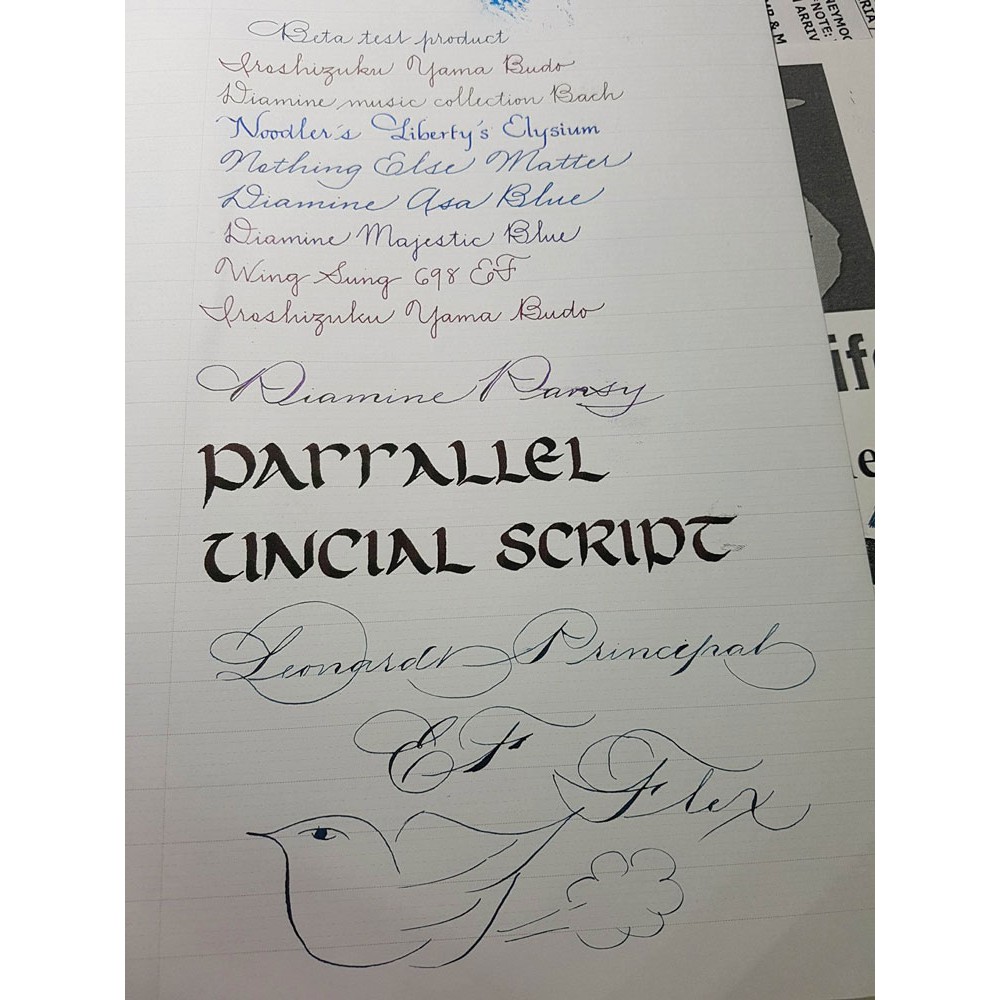 Beta test product
Iroshizuku Yama Budo
Diamine music collection Bach
Noodler's Liberty's Elysium
Nothing Else Matter
Diamine Asa Blue
Diamine Majestic Blue
Wing Sung 698 EF
Iroshizuku Yama Budo
Diamine Pansy
Parrallel
Uncial Script
Leonardt Principal
EF Flex
NEYMOO
NOTE:
ARRIV
& M
RIA
ife
e